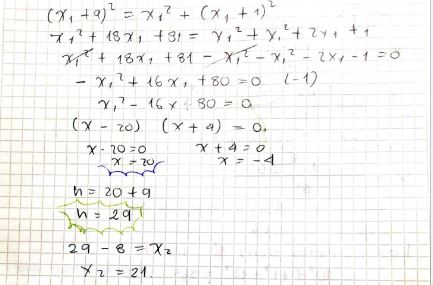 (x₁+9)² = x₁² + (x₁+1)²
x₁² + 18x₁ + 81 = x₁² + x₁² + 2x₁ + 1
x₁² + 18x₁ + 81 - x₁² - x₁² - 2x₁ - 1 = 0
- x₁² + 16x₁ + 80 = 0 (-1)
x₁² - 16x - 80 = 0
(x - 20) (x + 4) = 0.
x - 20 = 0 x + 4 = 0
x = 20 x = -4
h = 20 + 9
h = 29
29 - 8 = x₂
x₂ = 21.